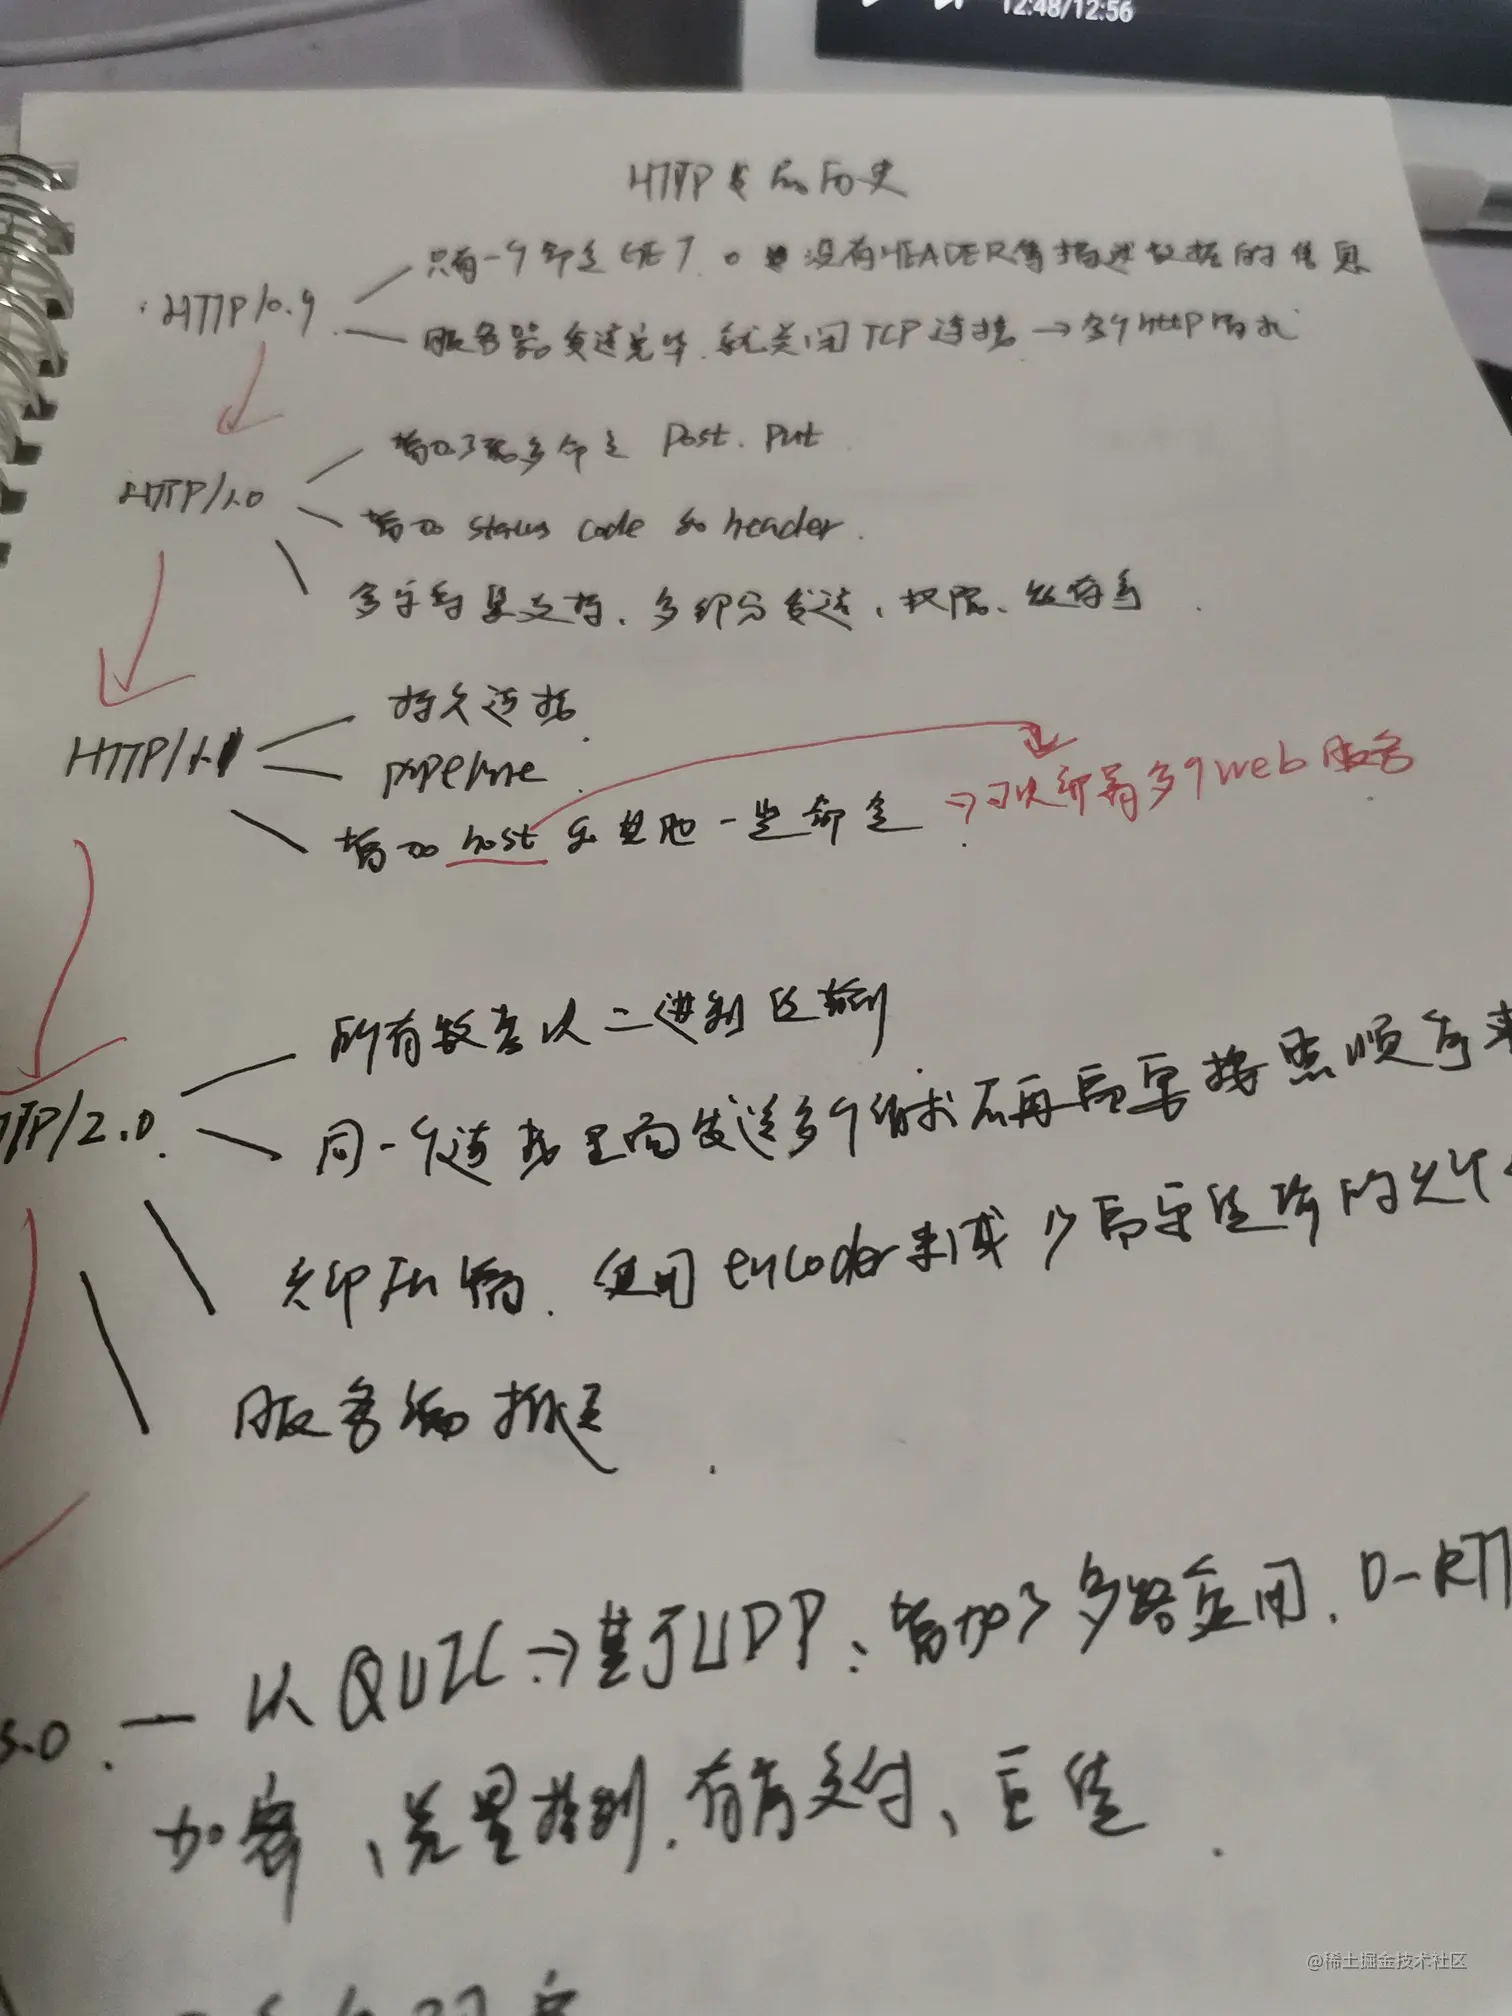 12:48/12:56
HTTP发展历史
HTTP/0.9
只有一个命令GET。没有HEADER等描述数据的信息
服务器发送完毕,就关闭TCP连接→多个HTTP请求
HTTP/1.0
增加了很多命令 post. put
增加 status code 和 header.
多字符集支持、多部分发送、权限、缓存等
HTTP/1.1
持久连接
pipeline
增加host和其他一些命令
→可以部署多个web服务
TTP/2.0
所有数据以二进制传输
同一个连接里面发送多个请求不再需要按照顺序来
头部压缩. 使用encoder来减少需要传输的大小
服务端推送
3.0
从QUIC→基于UDP、增加了多路复用、0-RTT
加密、流量控制、有序交付、重传.
@稀土掘金技术社区